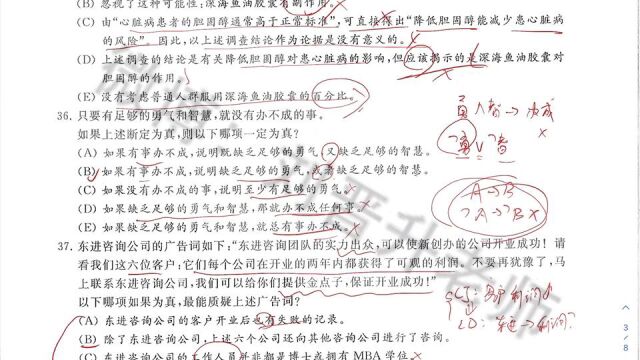 (B) 忽视了这种可能性：深海鱼油有副作用。
(C) 由“心脏病患者的胆固醇通常高于正常标准”，可直接得出“降低胆固醇能减少患心脏病
的风险”。因此，以上述调查结论作为论据是没有意义的。
(D) 上述调查的结论是有关降低胆固醇对患心脏病的影响，但应该揭示的是深海鱼油胶囊对
胆固醇的作用。
(E) 没有考虑普通人群服用深海鱼油胶囊的百分比。
36. 只要有足够的勇气和智慧，就没有办不成的事。
如果上述断定为真，则以下哪项一定为真？
(A) 如果有事办不成，说明既缺乏足够的勇气，又缺乏足够的智慧。
(B) 如果有事办不成，说明缺乏足够的勇气，或者缺乏足够的智慧。
(C) 如果没有办不成的事，说明至少有足够的勇气。
(D) 如果缺乏足够的勇气和智慧，那就办不成任何事。
(E) 如果缺乏足够的勇气和智慧，就总有事办不成。
37. 东进咨询公司的广告词如下：“东进咨询团队的实力出众，可以使新创办的公司开业成功！请
看我们这六位客户：它们每个公司在开业的两年内都获得了可观的利润。不要再犹豫了，马
上联系东进咨询公司，我们可以给你们提供金点子，保证开业成功！”
以下哪项如果为真，最能质疑上述广告词？
(A) 东进咨询公司的客户开业后也有失败的记录。
(B) 除了东进咨询公司，上述六个公司还向其他咨询公司进行了咨询。
(C) 东进咨询公司的工作人员并非都是博士或拥有 MBA 学位。
A→B
¬A→¬B ×
3/8